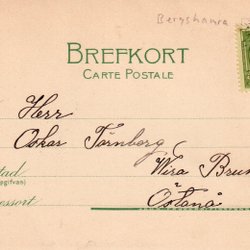 Bergshamra
BREFKORT
CARTE POSTALE
Herr
Oskar Törnberg
Wira Bruk
Östanå